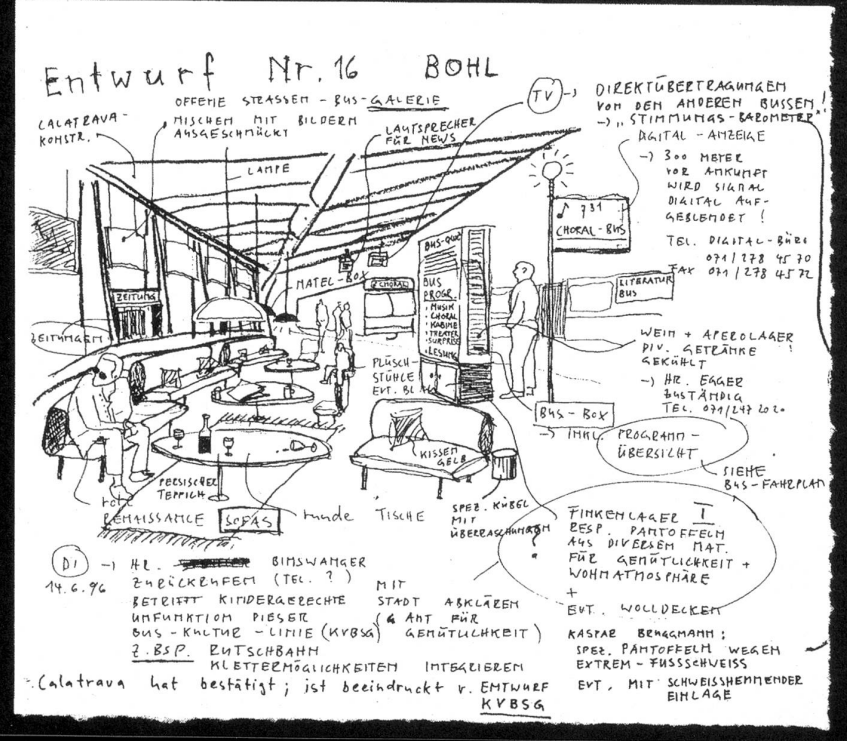 Entwurf Nr. 16 BOHL
CALATRAVA-
KONSTR.
OFFENE STRASSEN-BUS-GALERIE
MISCHEN MIT BILDERN
AUSGESCHMÜCKT
LAUTSPRECHER
FÜR NEWS
TV
DIREKTÜBERTRAGUNGEN
VON DEN ANDEREN BUSSEN!
→ „STIMMUNGS-BAROMETER"
DIGITAL-ANZEIGE
→ 300 METER
VOR ANKUNFT
WIRD SIGNAL
DIGITAL AUF-
GEBLENDET!
TEL. DIGITAL-BÜRO
071/278 45 70
FAX 071/278 45 72
LAMPE
♪ 731
CHORAL-BUS
MATEL-BOX
CHORAL
BUS
PROGR.
· MUSIK
· CHORAL
· KABINE
· THEATER
· SURPRISE
· LESUNG
LITERATUR
BUS
ZEITUNG
ZEITUNGEN
PLÜSCH-
STÜHLE
EVT. BLAU
WEIN + APEROLAGER
DIV. GETRÄNKE
GEKÜHLT!
→ HR. EGGER
ZUSTÄNDIG
TEL. 071/247 20 20
BUS-BOX
→ INKL. PROGRAMM-
ÜBERSICHT
SIEHE
BUS-FAHRPLAN
KISSEN
GELB
PERSISCHER
TEPPICH
rote
RENAISSANCE SOFAS
runde TISCHE
SPEZ. KÜBEL
MIT
ÜBERRASCHUNGEN
?
FINKENLAGER I
RESP. PANTOFFELN
AUS DIVERSEN MAT.
FÜR GEMÜTLICHKEIT +
WOHNATMOSPHÄRE
+
EVT. WOLLDECKEN
DI → HR. BINSWANGER
14.6.96 ZURÜCKRUFEN (TEL. ?)
BETRIFFT KINDERGERECHTE
UMFUNKTION DIESER
BUS-KULTUR-LINIE (KVBSG)
Z. BSP. RUTSCHBAHN
KLETTERMÖGLICHKEITEN INTEGRIEREN
MIT
STADT ABKLÄREN
(& AMT FÜR
GEMÜTLICHKEIT)
KASPAR BRUGGMANN:
SPEZ. PANTOFFELN WEGEN
EXTREM-FUSSSCHWEISS
EVT. MIT SCHWEISSHEMMENDER
EINLAGE
· Calatrava hat bestätigt; ist beeindruckt v. ENTWURF
KVBSG